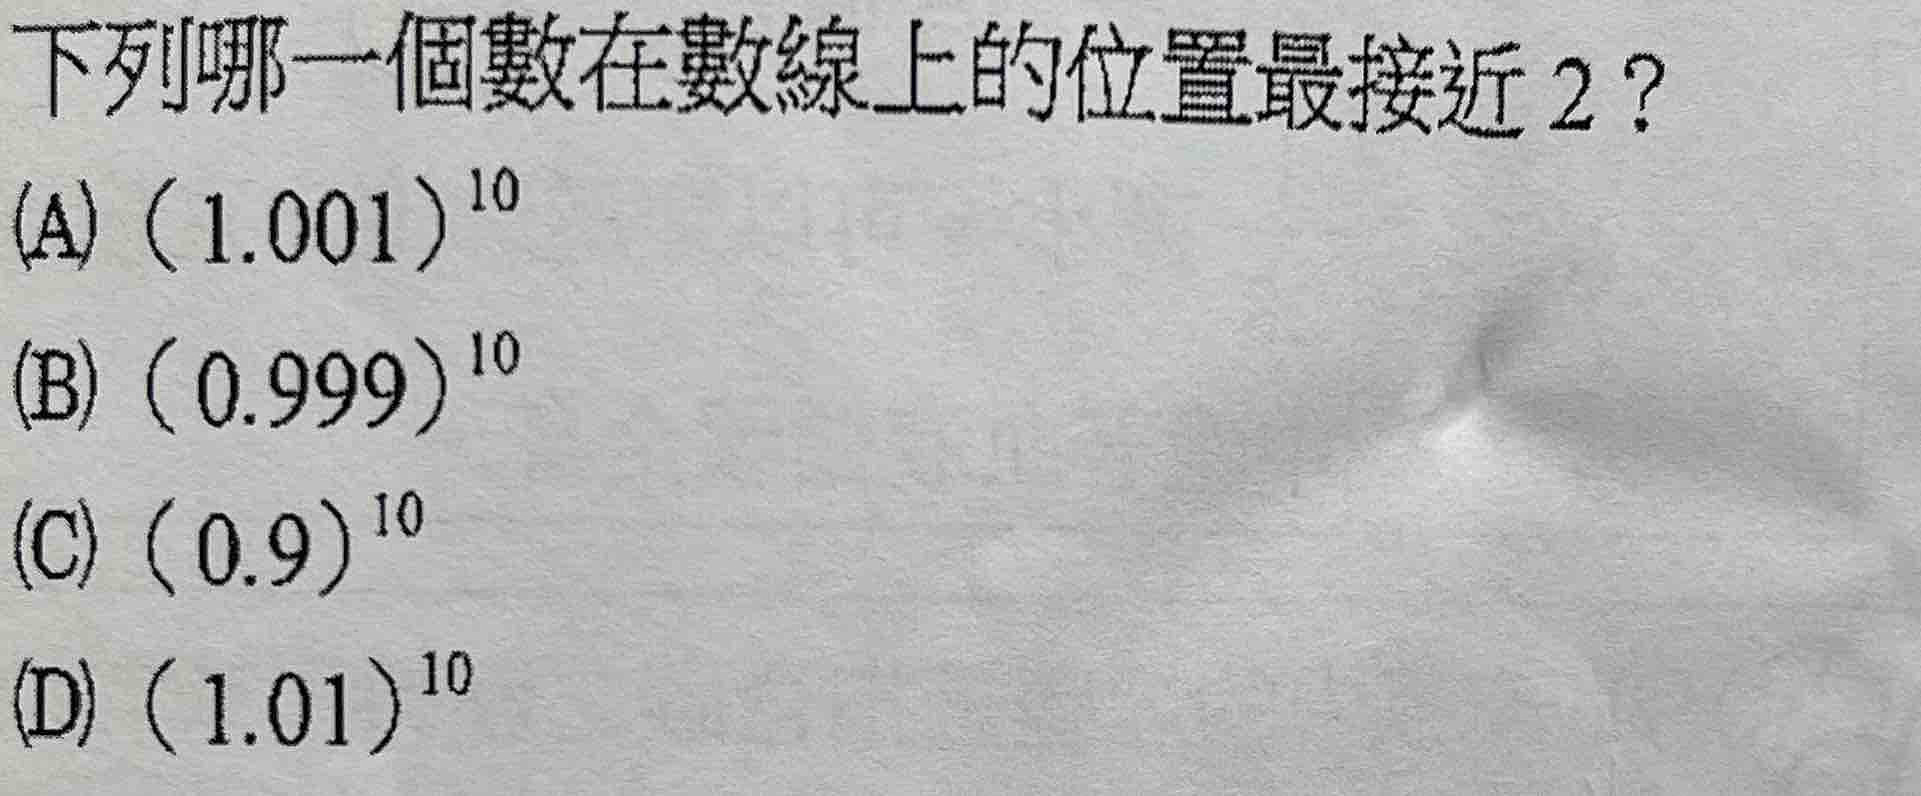 下列哪一個數在數線上的位置最接近2？
(A)（1.001）¹⁰
(B)（0.999）¹⁰
(C)（0.9）¹⁰
(D)（1.01）¹⁰